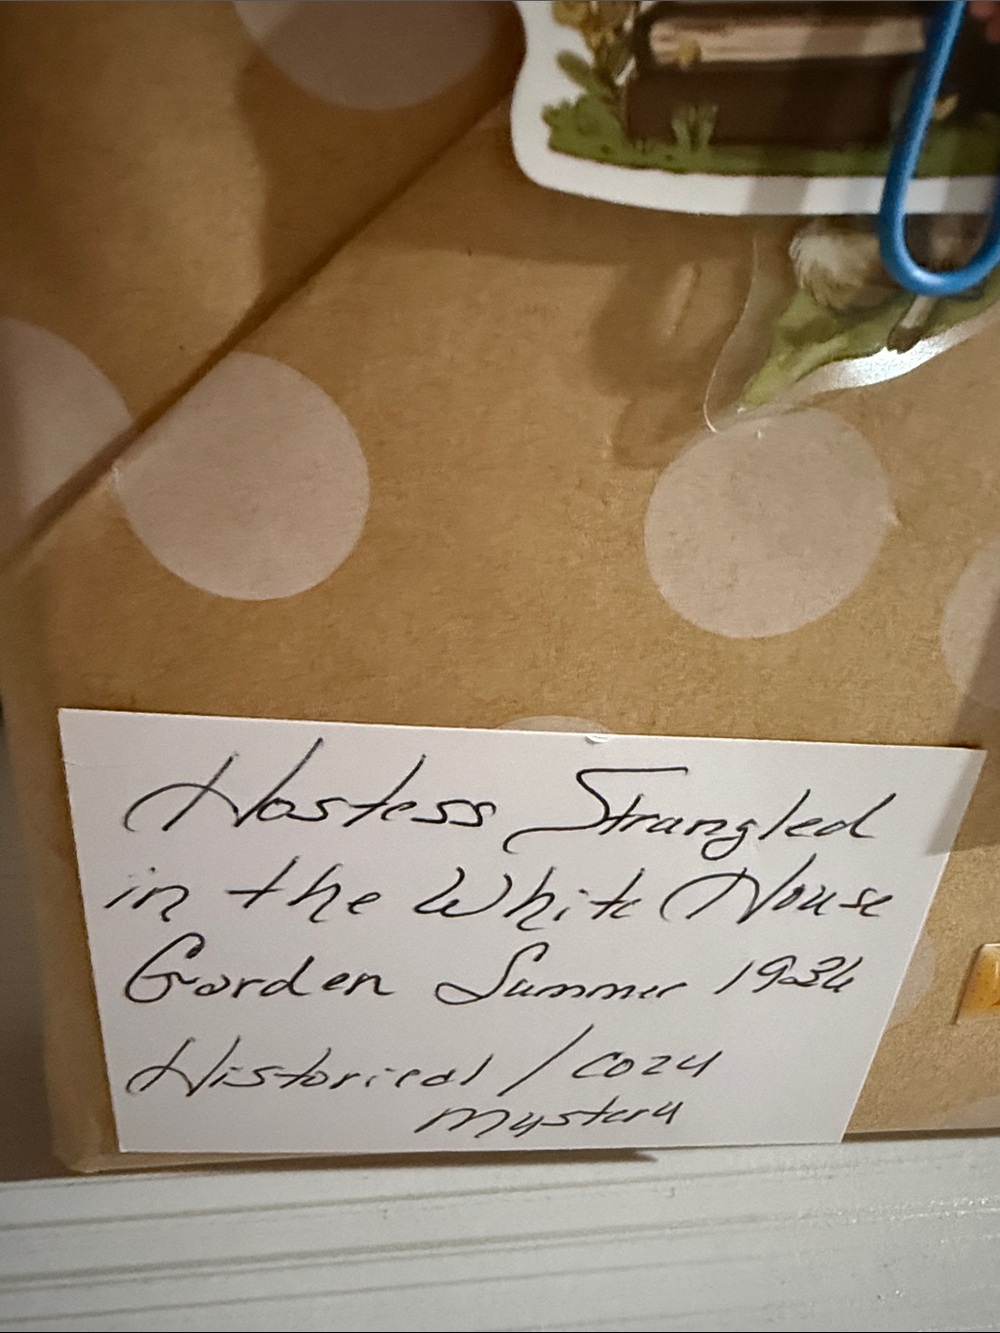 Hostess Strangled
in the White House
Garden Summer 1936
Historical / Cozy
Mystery